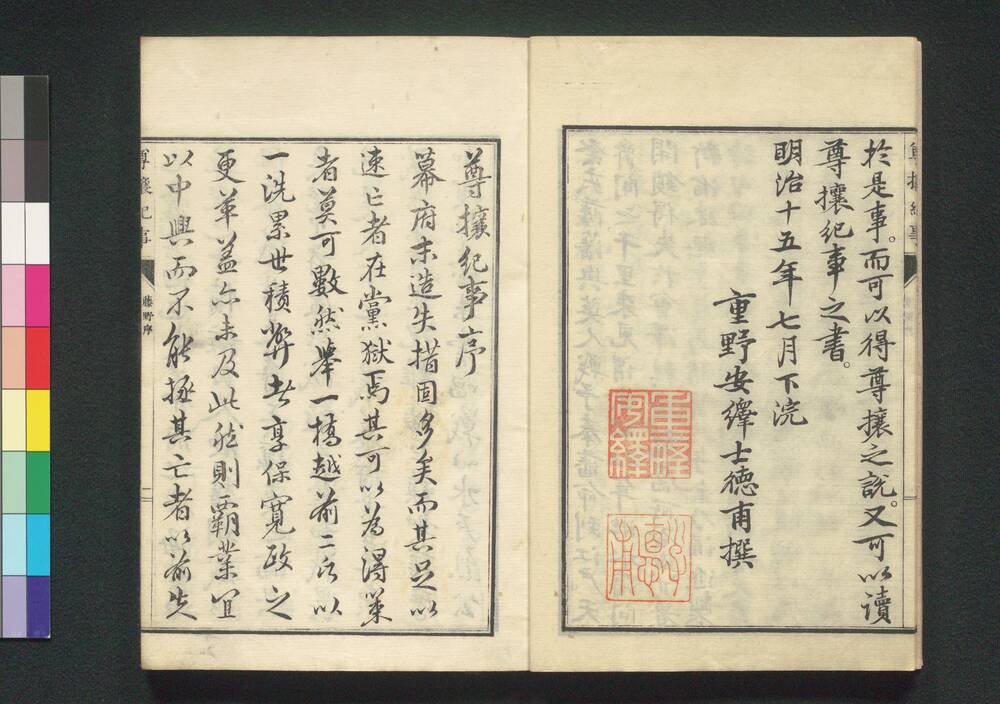 於是事。而可以得尊攘之説。又可以讀
尊攘紀事之書。
明治十五年七月下浣
重野安繹士徳甫撰
重野
安繹
尊攘紀事序
幕府末造失措固多矣而其足以
速亡者在黨獄焉其可以為得策
者莫可數然舉一橋越前二公以
一洗累世積弊者享保寛政之
更革蓋亦未及此然則覇業宜
以中興而不能拯其亡者以前失
尊攘紀事
藤野序